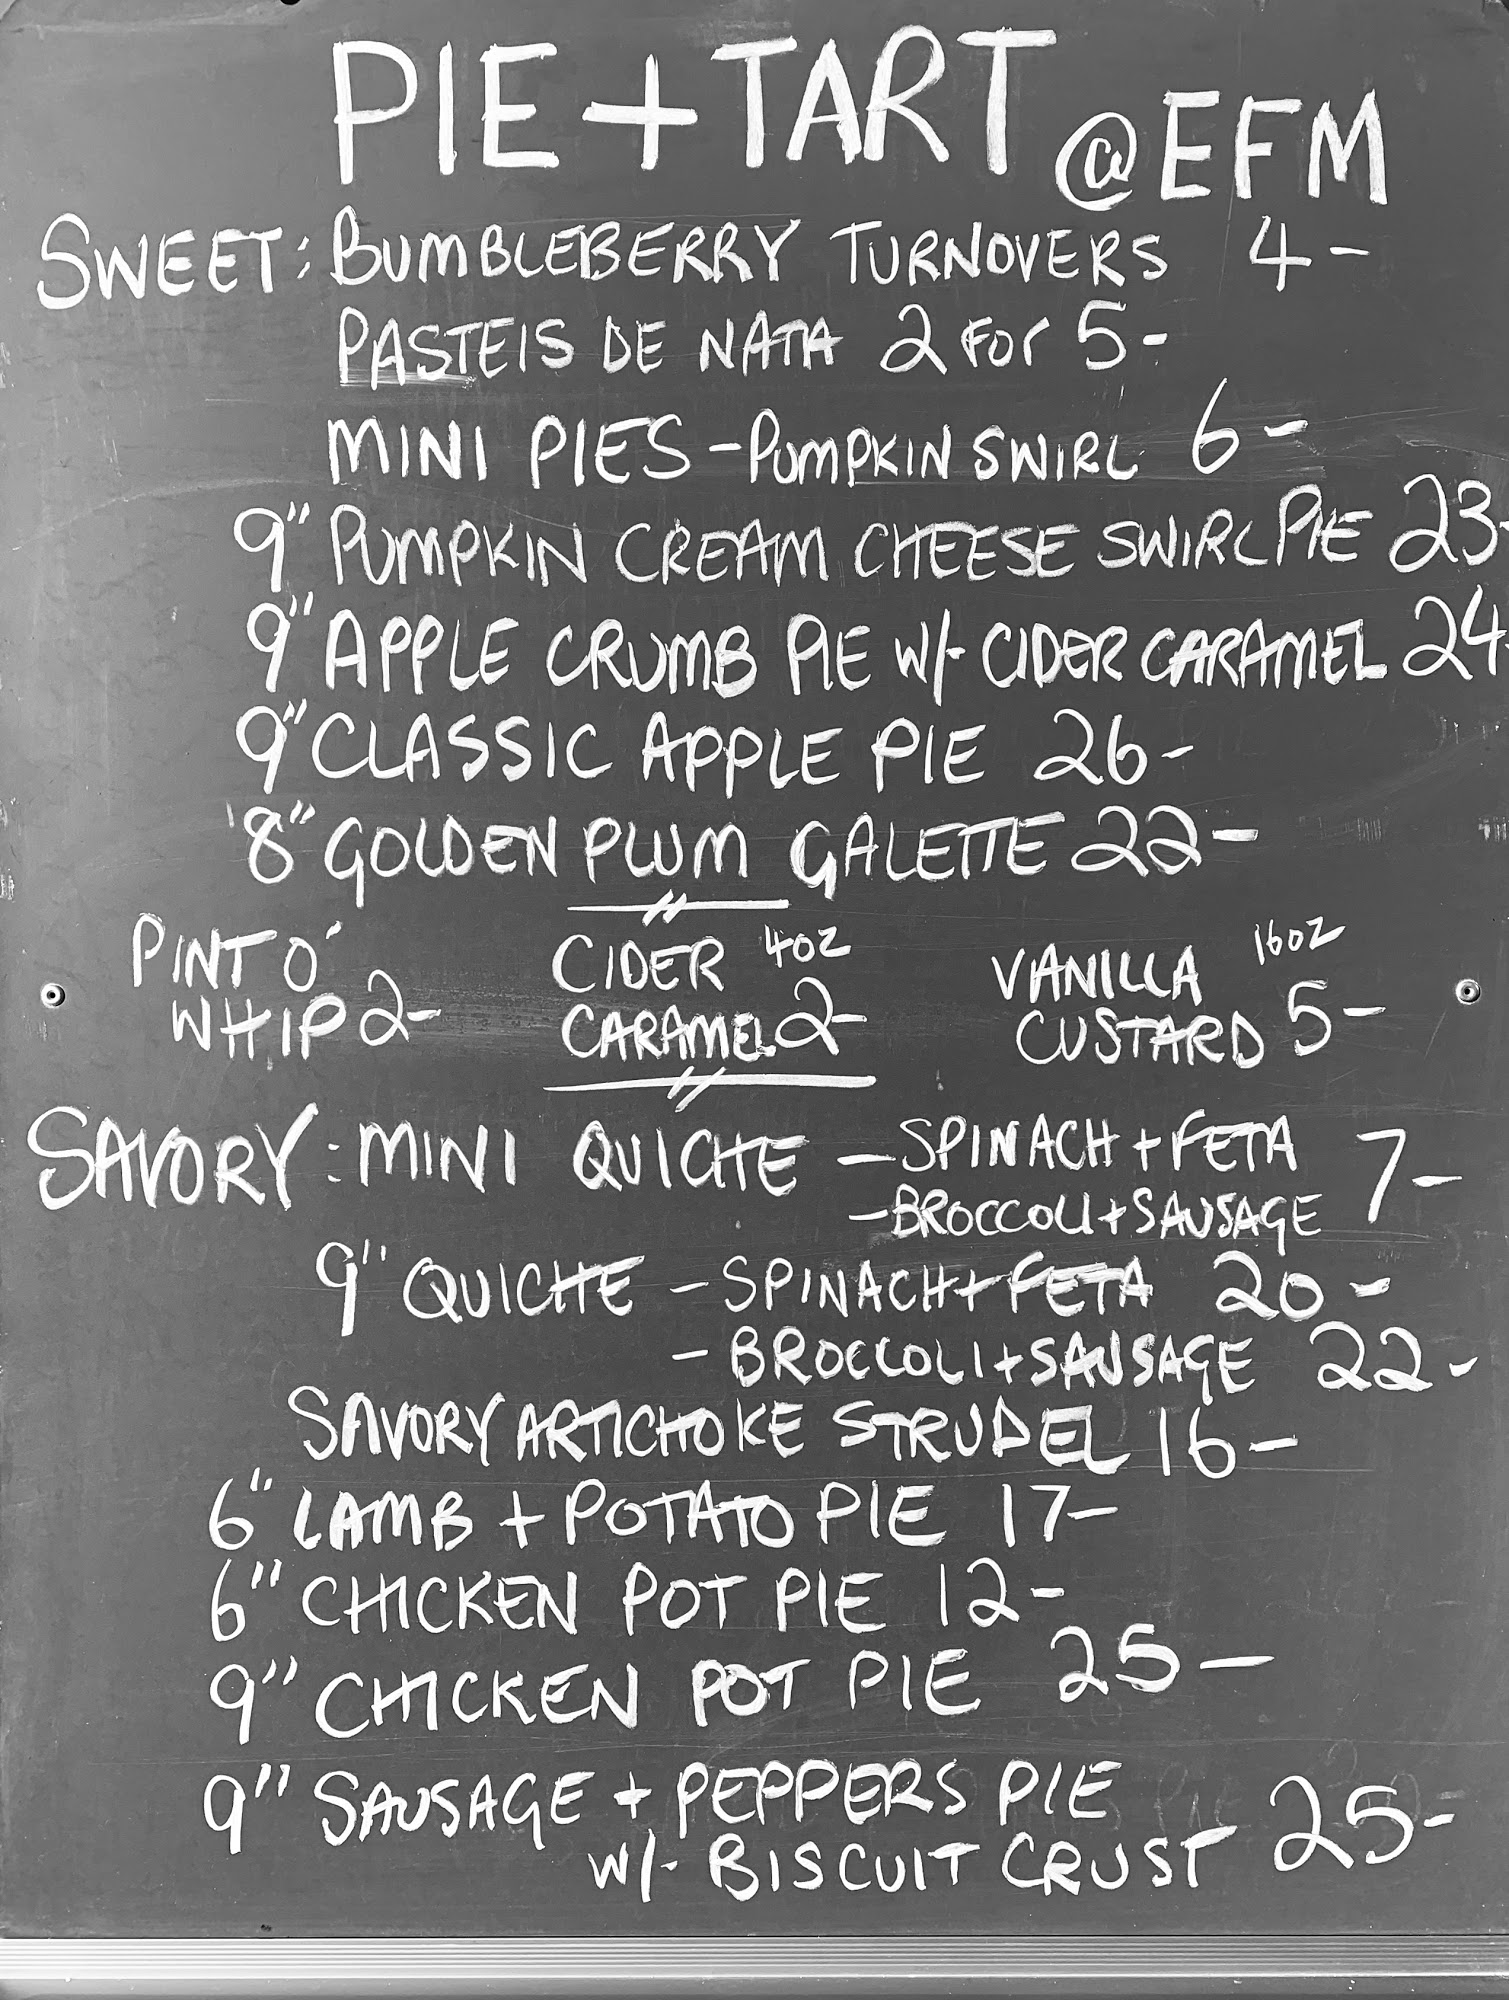 PIE + TART @ EFM
SWEET: BUMBLEBERRY TURNOVERS 4-
PASTEIS DE NATA 2 FOR 5-
MINI PIES - PUMPKIN SWIRL 6-
9" PUMPKIN CREAM CHEESE SWIRL PIE 23-
9" APPLE CRUMB PIE W/- CIDER CARAMEL 24-
9" CLASSIC APPLE PIE 26-
8" GOLDEN PLUM GALETTE 22-
PINT O' WHIP 2-
CIDER CARAMEL 4OZ 2-
VANILLA CUSTARD 16OZ 5-
SAVORY: MINI QUICHE - SPINACH + FETA 7-
- BROCCOLI + SAUSAGE
9" QUICHE - SPINACH + FETA 20-
- BROCCOLI + SAUSAGE 22-
SAVORY ARTICHOKE STRUDEL 16-
6" LAMB + POTATO PIE 17-
6" CHICKEN POT PIE 12-
9" CHICKEN POT PIE 25-
9" SAUSAGE + PEPPERS PIE
W/- BISCUIT CRUST 25-